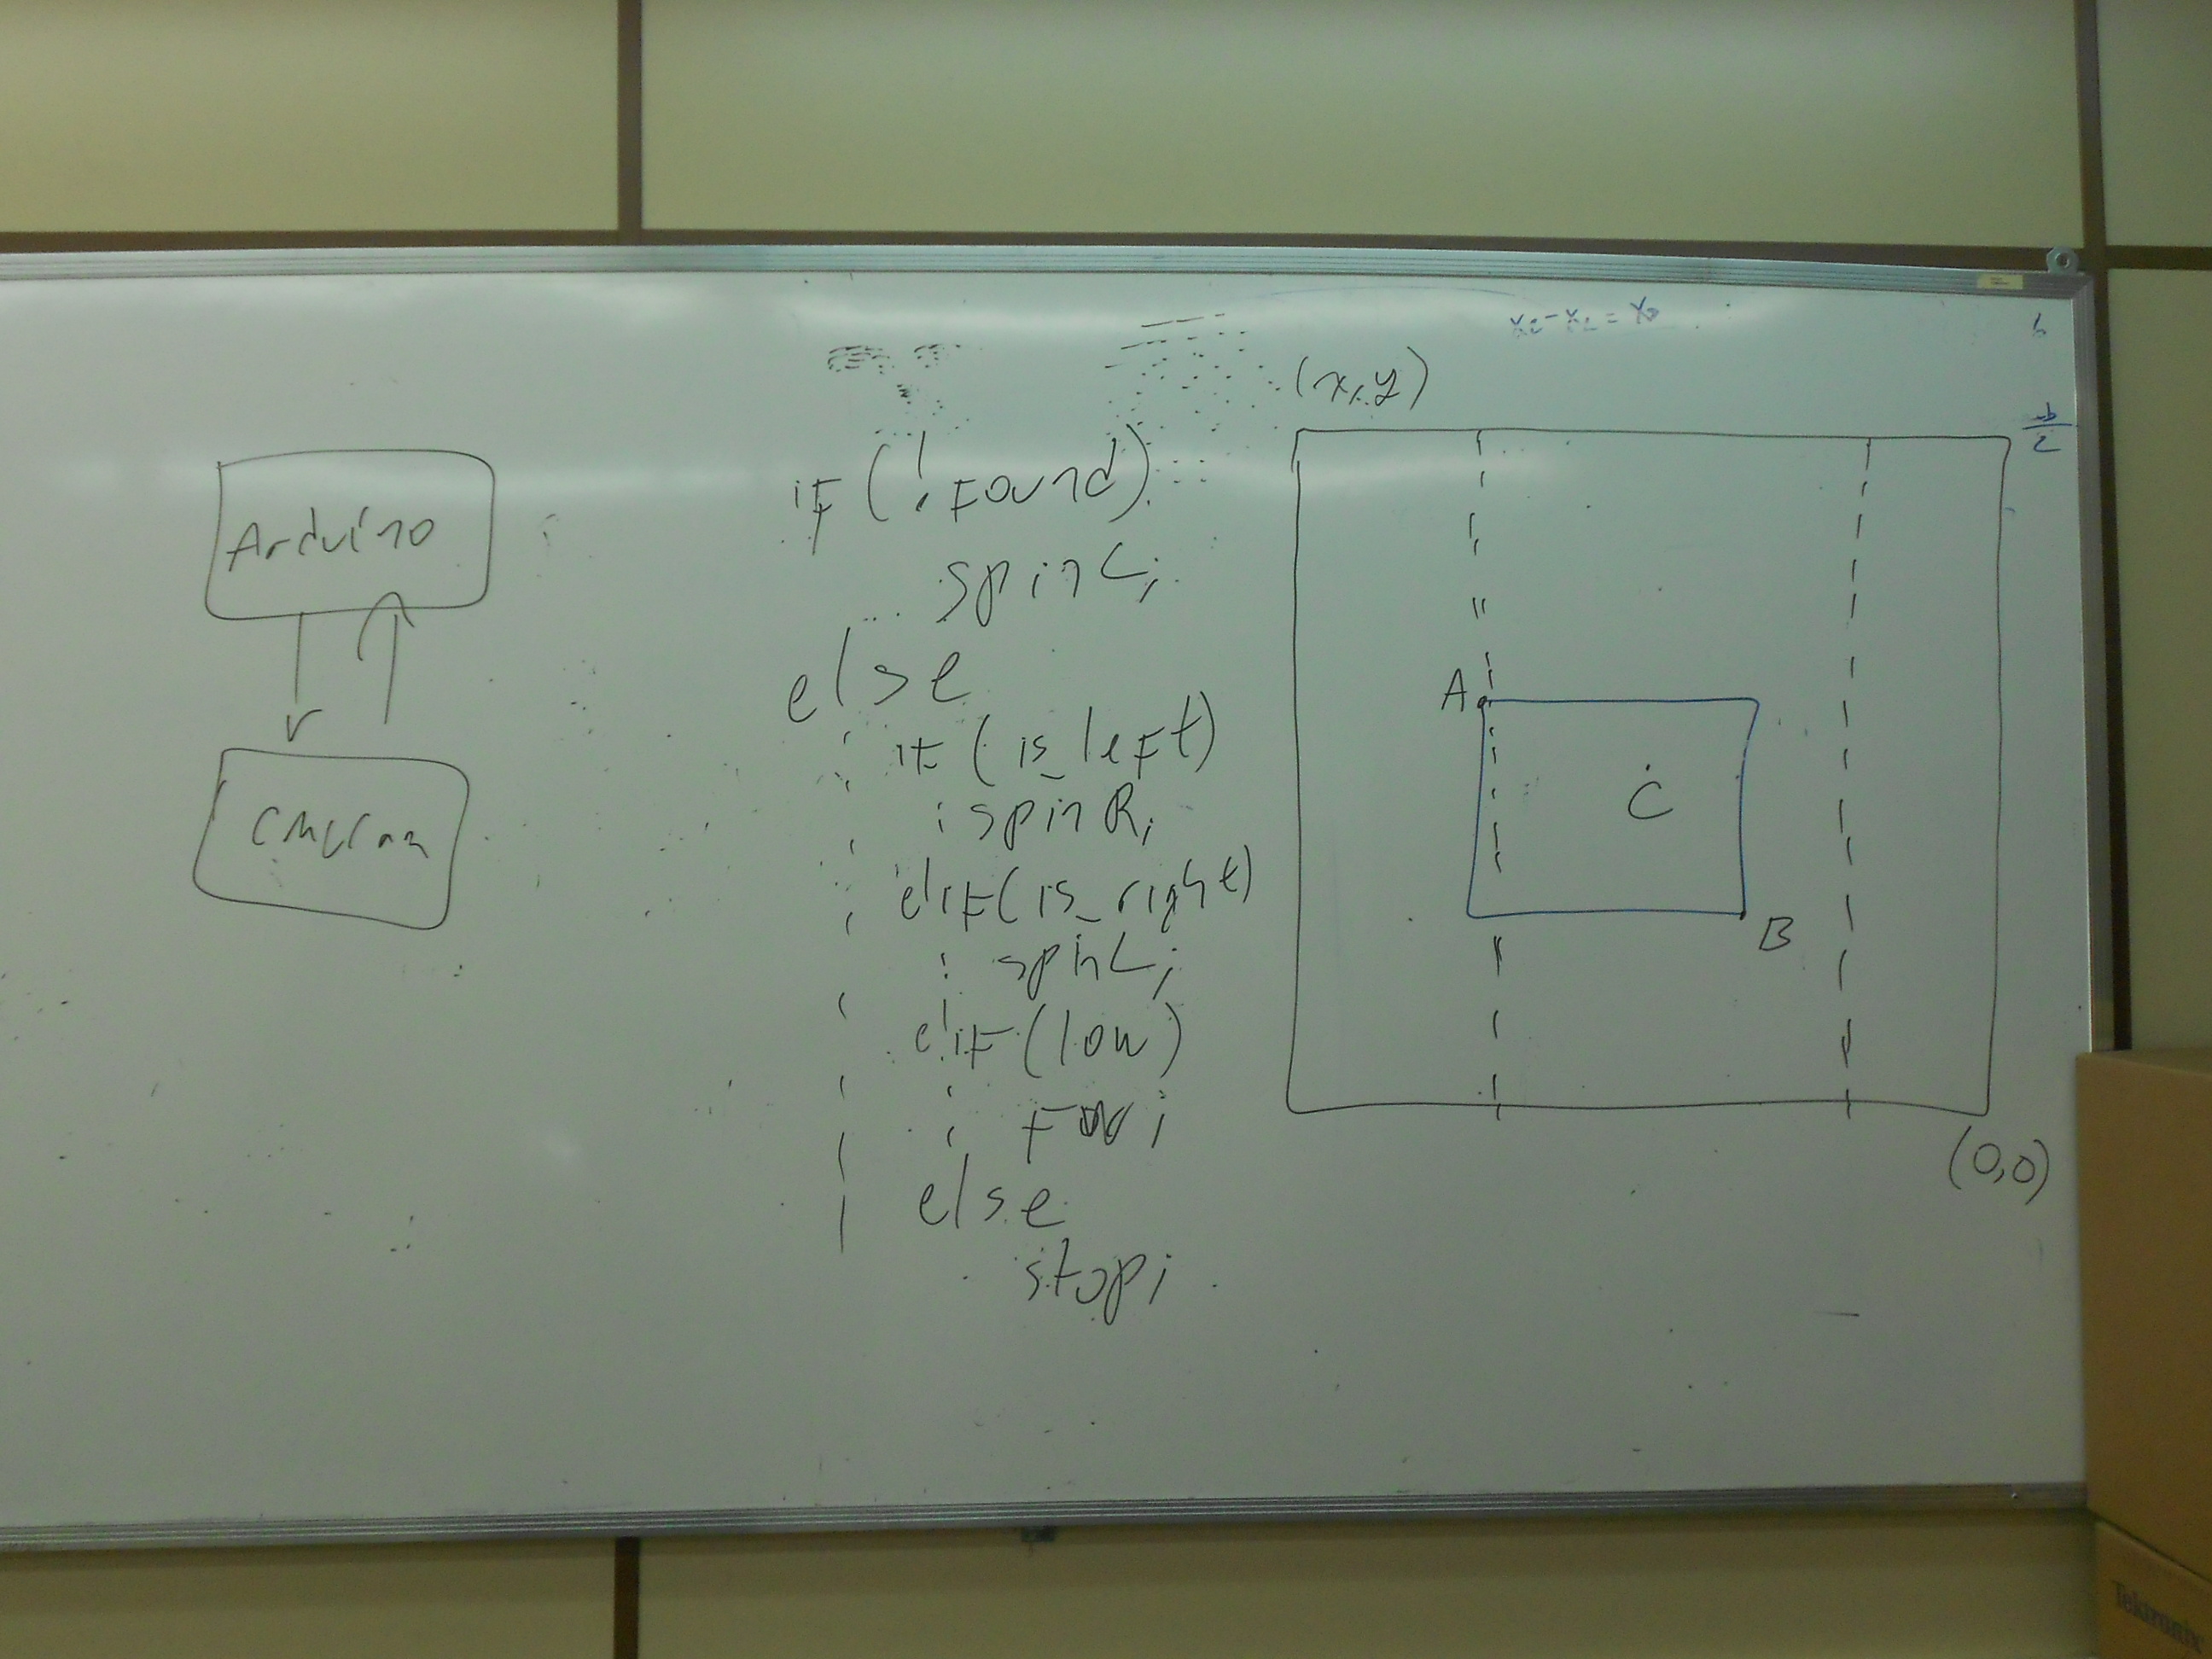 Arduino
CMUcam
if (!found)
spinL;
else
if (is_left)
spinR;
elif (is_right)
spinL;
elif (low)
fwd;
else
stop;
(x,y)
A
C
B
(0,0)
b
2
Tektronix